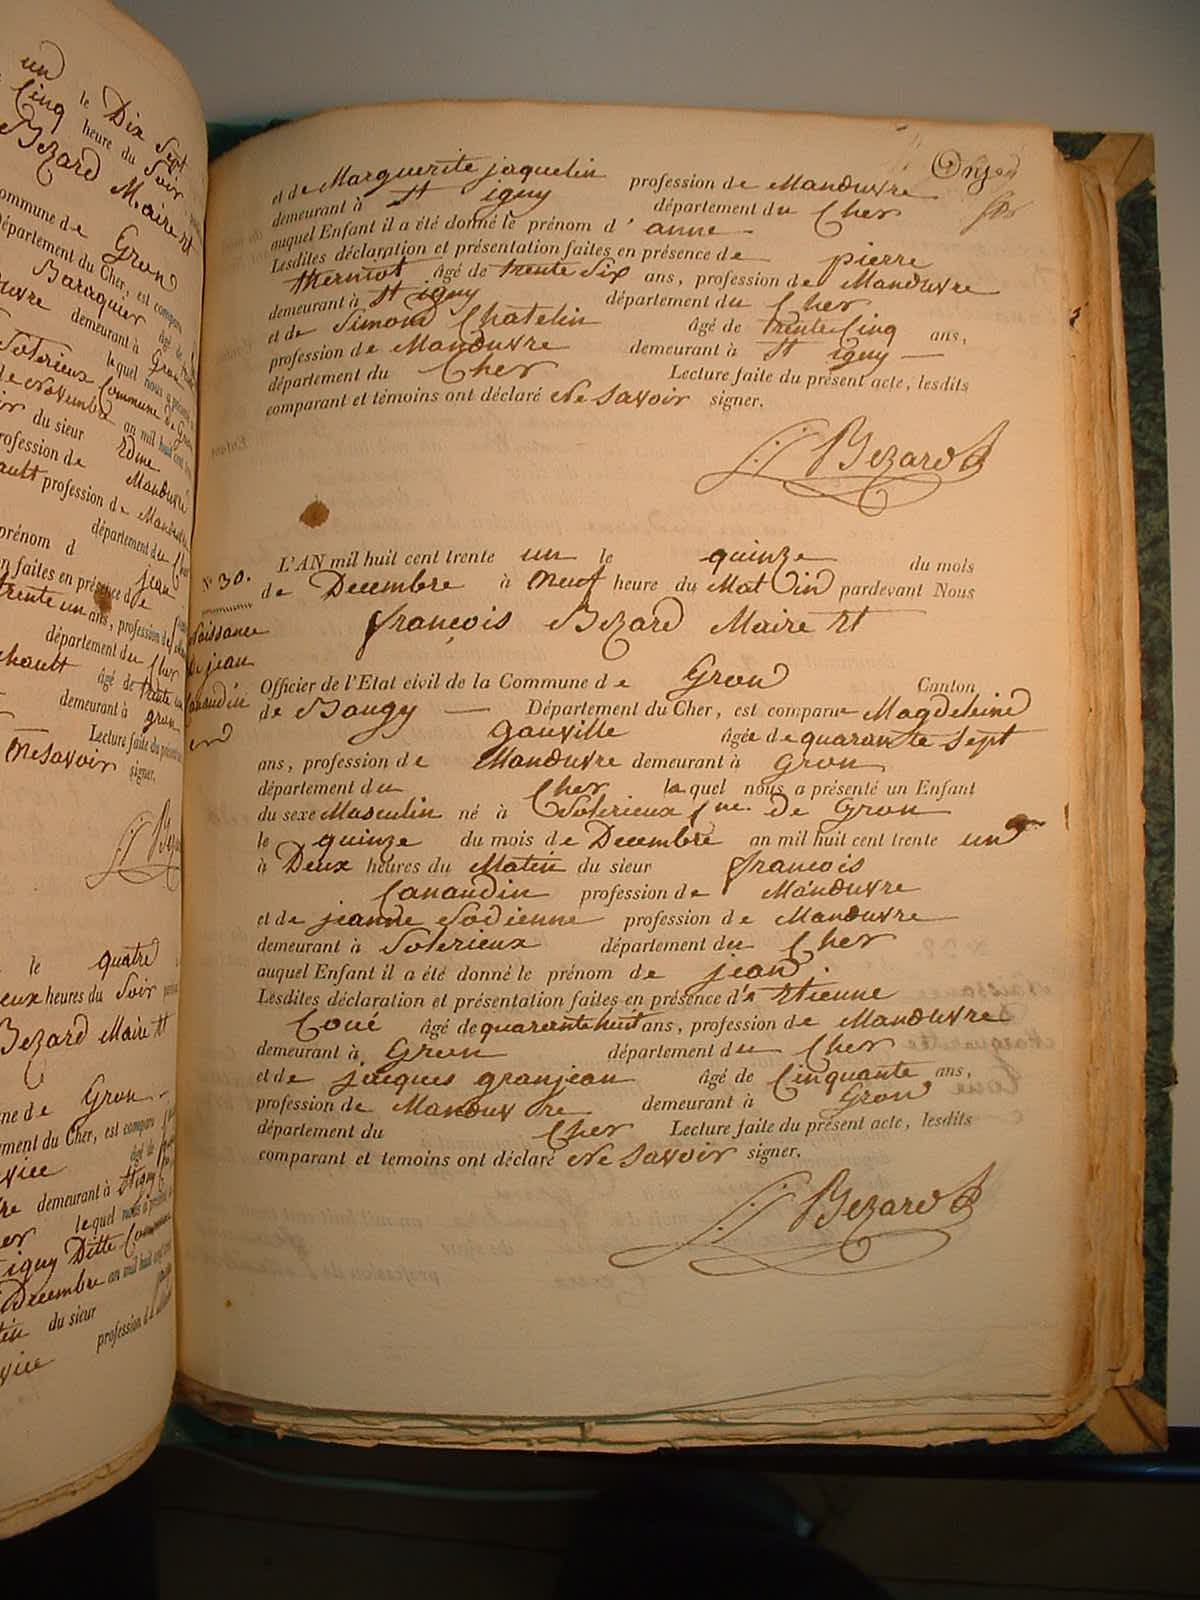 un
le Dix Sept
Cinq heure du Soir
Bezard Maire et
commune de Gron
département du Cher, est compar
Baraquier âgé de
demeurant à Gron
lequel nous a présenté
Soterieux Commune de Gron
de Novembre an mil huit cent
du sieur Edme
profession de Manœuvre
profession de
département du
prénom d jean
faites en présence de
trente un ans, profession de
département du Cher
âgé de trente
demeurant à gron
Lecture faite du présent
Ne savoir signer.
le quatre
heures du Soir
Bezard Maire et
de Gron
département du Cher, est compar
âgé de
demeurant à St igny
lequel nous a présenté
igny Ditte Commune
Decembre an mil huit cent
du sieur
profession d
Onze
et de Marguerite jaquelin profession de Manœuvre
demeurant à St igny département du Cher
auquel Enfant il a été donné le prénom d'anne
Lesdites déclaration et présentation faites en présence de pierre
therniot âgé de trente Six ans, profession de Manœuvre
demeurant à St igny département du Cher
et de Simond Chatelin âgé de trente Cinq ans,
profession de Manœuvre demeurant à St igny
département du Cher Lecture faite du présent acte, lesdits
comparant et témoins ont déclaré Ne Savoir signer.
Bezard
N° 30.
Naissance
de jean
Canaudin
L'AN mil huit cent trente un le quinze du mois
de Decembre à Neuf heure du Matin pardevant Nous
françois Bezard Maire et
Officier de l'Etat civil de la Commune de Gron Canton
de Baugy Département du Cher, est comparue Magdeleine
gauville âgée de quarante Sept
ans, profession de Manœuvre demeurant à gron
département du Cher laquel nous a présenté un Enfant
du sexe Masculin né à Soterieux Cne. de Gron
le quinze du mois de Decembre an mil huit cent trente un
à Deux heures du Matin du sieur françois
Canaudin profession de Manœuvre
et de jeanne Sodienne profession de Manœuvre
demeurant à Soterieux département du Cher
auquel Enfant il a été donné le prénom de jean
Lesdites déclaration et présentation faites en présence d'Etienne
Coué âgé de quarante huit ans, profession de Manœuvre
demeurant à Gron département du Cher
et de jacques granjean âgé de Cinquante ans,
profession de Manœuvre demeurant à Gron
département du Cher Lecture faite du présent acte, lesdits
comparant et temoins ont déclaré Ne Savoir signer.
Bezard